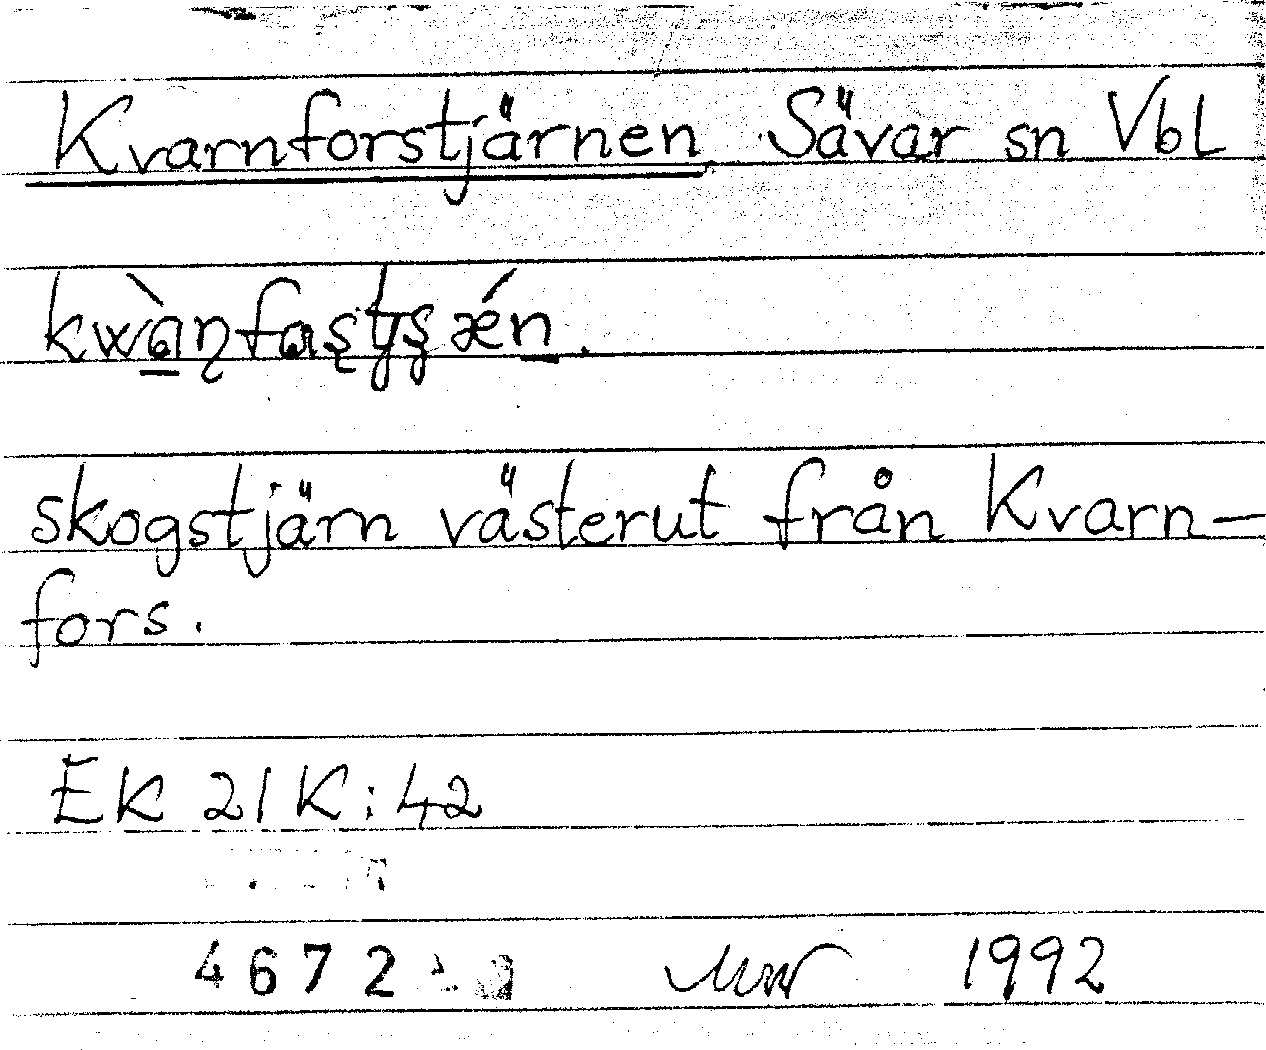 Kvarnforstjärnen Sävar sn Vbl
skogstjärn västerut från Kvarn-
fors.
EK 21K:42
4672
1992